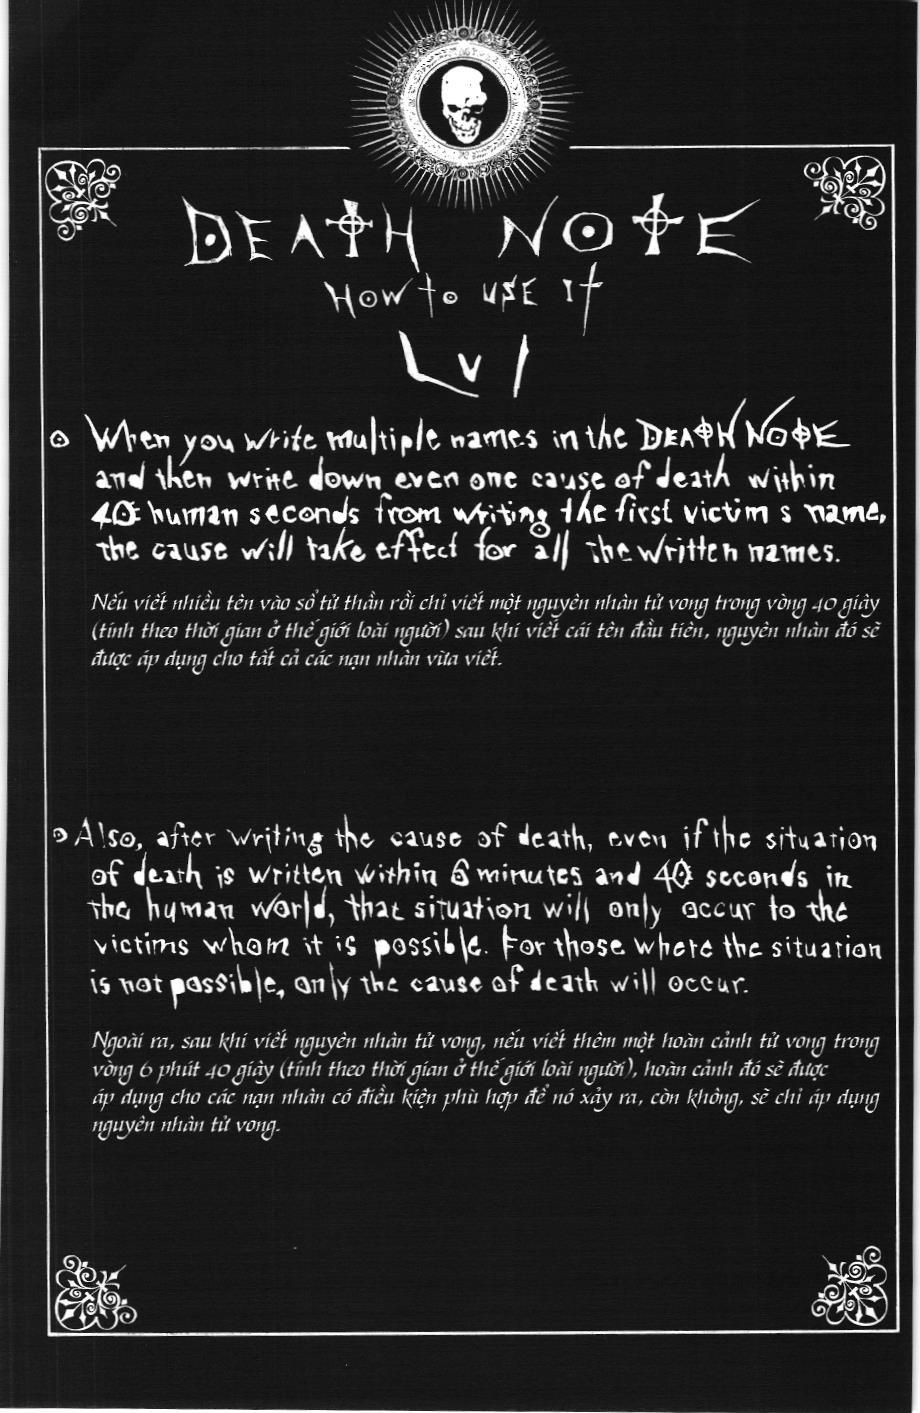 DEATH NOTE
HOW to USE It
LVI
When you write multiple names in the DEATH NOTE
and then write down even one cause of death within
40 human seconds from writing the first victim s name,
the cause will take effect for all the written names.
Nếu viết nhiều tên vào sổ tử thần rồi chỉ viết một nguyên nhân tử vong trong vòng 40 giây
(tính theo thời gian ở thế giới loài người) sau khi viết cái tên đầu tiên, nguyên nhân đó sẽ
được áp dụng cho tất cả các nạn nhân vừa viết.
Also, after writing the cause of death, even if the situation
of death is written within 6 minutes and 40 seconds in
the human world, that situation will only occur to the
victims whom it is possible. For those where the situation
is not possible, only the cause of death will occur.
Ngoài ra, sau khi viết nguyên nhân tử vong, nếu viết thêm một hoàn cảnh tử vong trong
vòng 6 phút 40 giây (tính theo thời gian ở thế giới loài người), hoàn cảnh đó sẽ được
áp dụng cho các nạn nhân có điều kiện phù hợp để nó xảy ra, còn không, sẽ chỉ áp dụng
nguyên nhân tử vong.